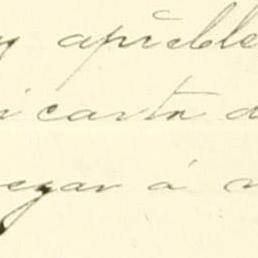 y apreble
i carta d
egar á